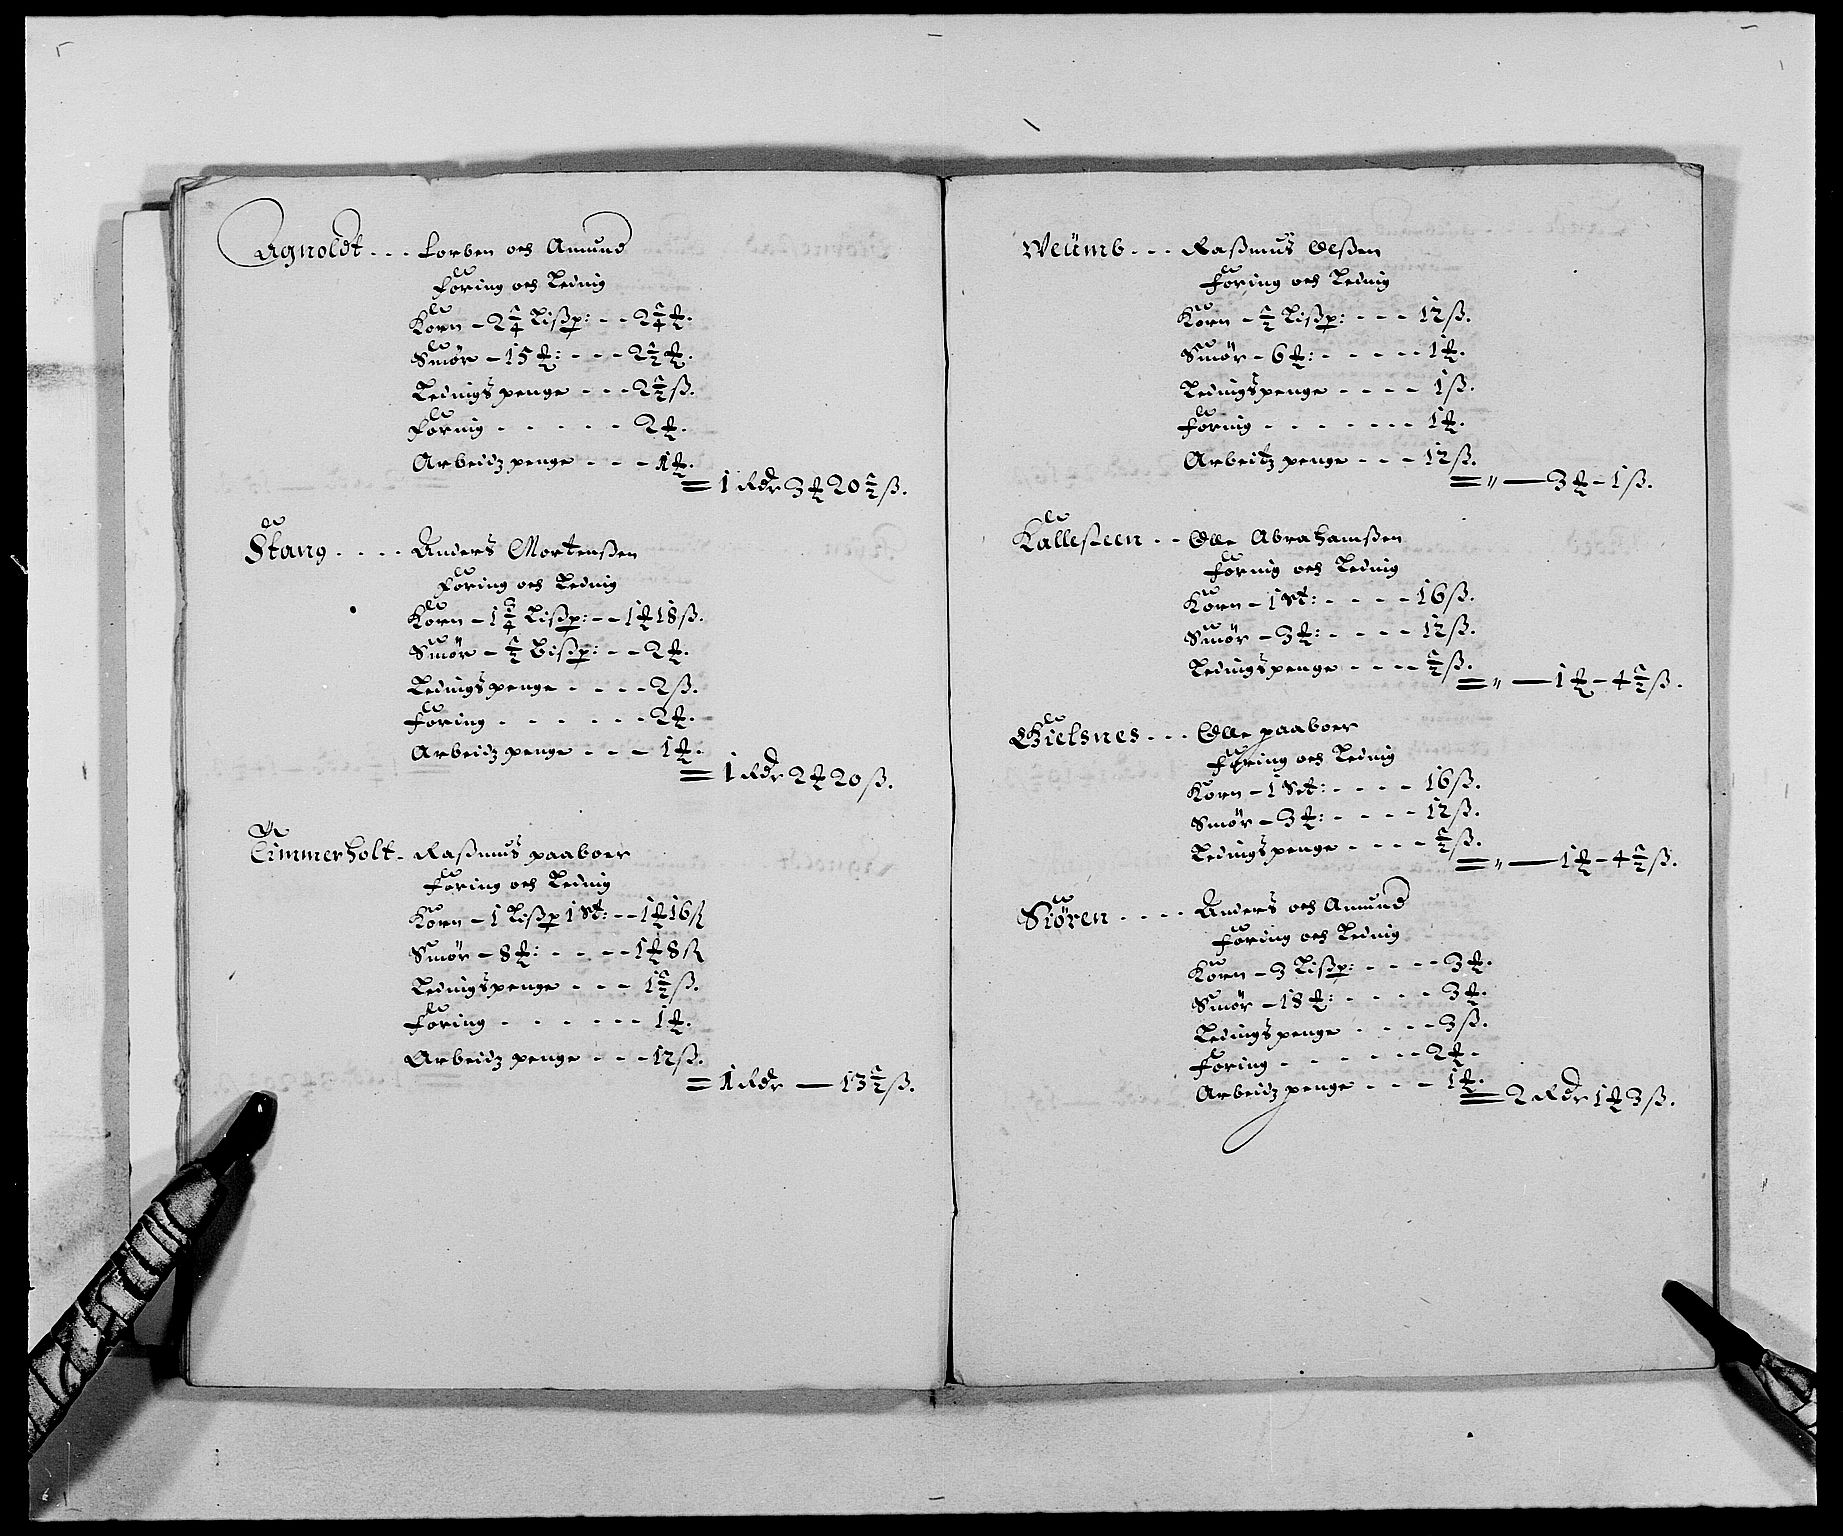 Agnoldt - - - Torben och Amund
Foring och Leding
Korn - 2 1/4 Lißp: - - 2 1/4 ℔.
Smør - 15 ℔: - - - 2 1/2 ℔.
Ledingspenge - - - 2 1/2 ß.
Foring - - - - - - 2 ℔.
Arbeidz penge - - - 1 ℔.
= 1 Rdr 3 ℔ 20 1/2 ß.
Stang - - - - Anders Mortenßen
Foring och Leding
Korn - 1 3/4 Lißp: - - 1 ℔ 18 ß.
Smør - 1/2 Bißp: - - 2 ℔.
Ledingspenge - - - - 2 ß.
Foring - - - - - - 2 ℔.
Arbeidz penge - - - 1 ℔.
= 1 Rdr 2 ℔ 20 ß.
Timmerholt - Raßmus paaboer
Foring och Leding
Korn - 1 Lißp 1 St: - - 1 ℔ 16 ß
Smør - 8 ℔: - - - - 1 ℔ 8 ß
Ledingspenge - - - 1 1/2 ß.
Foring - - - - - - 1 ℔.
Arbeidz penge - - - 12 ß.
= 1 Rdr — 13 1/2 ß.
Weümb - - - Raßmus Olßen
Foring och Leding
Korn - 1/2 Lißp: - - - 12 ß.
Smør - 6 ℔: - - - - - 1 ℔.
Ledingspenge - - - - 1 ß.
Foring - - - - - - - 1 ℔.
Arbeitz penge - - - 12 ß.
= " — 3 ℔ - 1 ß.
Kalleßeen - - Olle Abrahamßen
Foring och Leding
Korn - 1 St: - - - - 16 ß.
Smør - 3 ℔: - - - - 12 ß.
Ledingspenge - - - - 1/2 ß.
= " — 1 ℔ - 4 1/2 ß.
Gielsnes - - - Olle paaboer
Foring och Leding
Korn - 1 Set: - - - - 16 ß.
Smør - 3 ℔: - - - - 12 ß.
Ledingspenge - - - - 1/2 ß.
= " — 1 ℔ - 4 1/2 ß.
Siøren - - - - Anders och Amund
Foring och Leding
Korn - 3 Lißp: - - - - 3 ℔.
Smør - 18 ℔: - - - - 3 ℔.
Ledingspenge - - - - 3 ß.
Foring - - - - - - 2 ℔.
Arbeidz penge - - - 1 ℔.
= 2 Rdr 1 ℔ 3 ß.